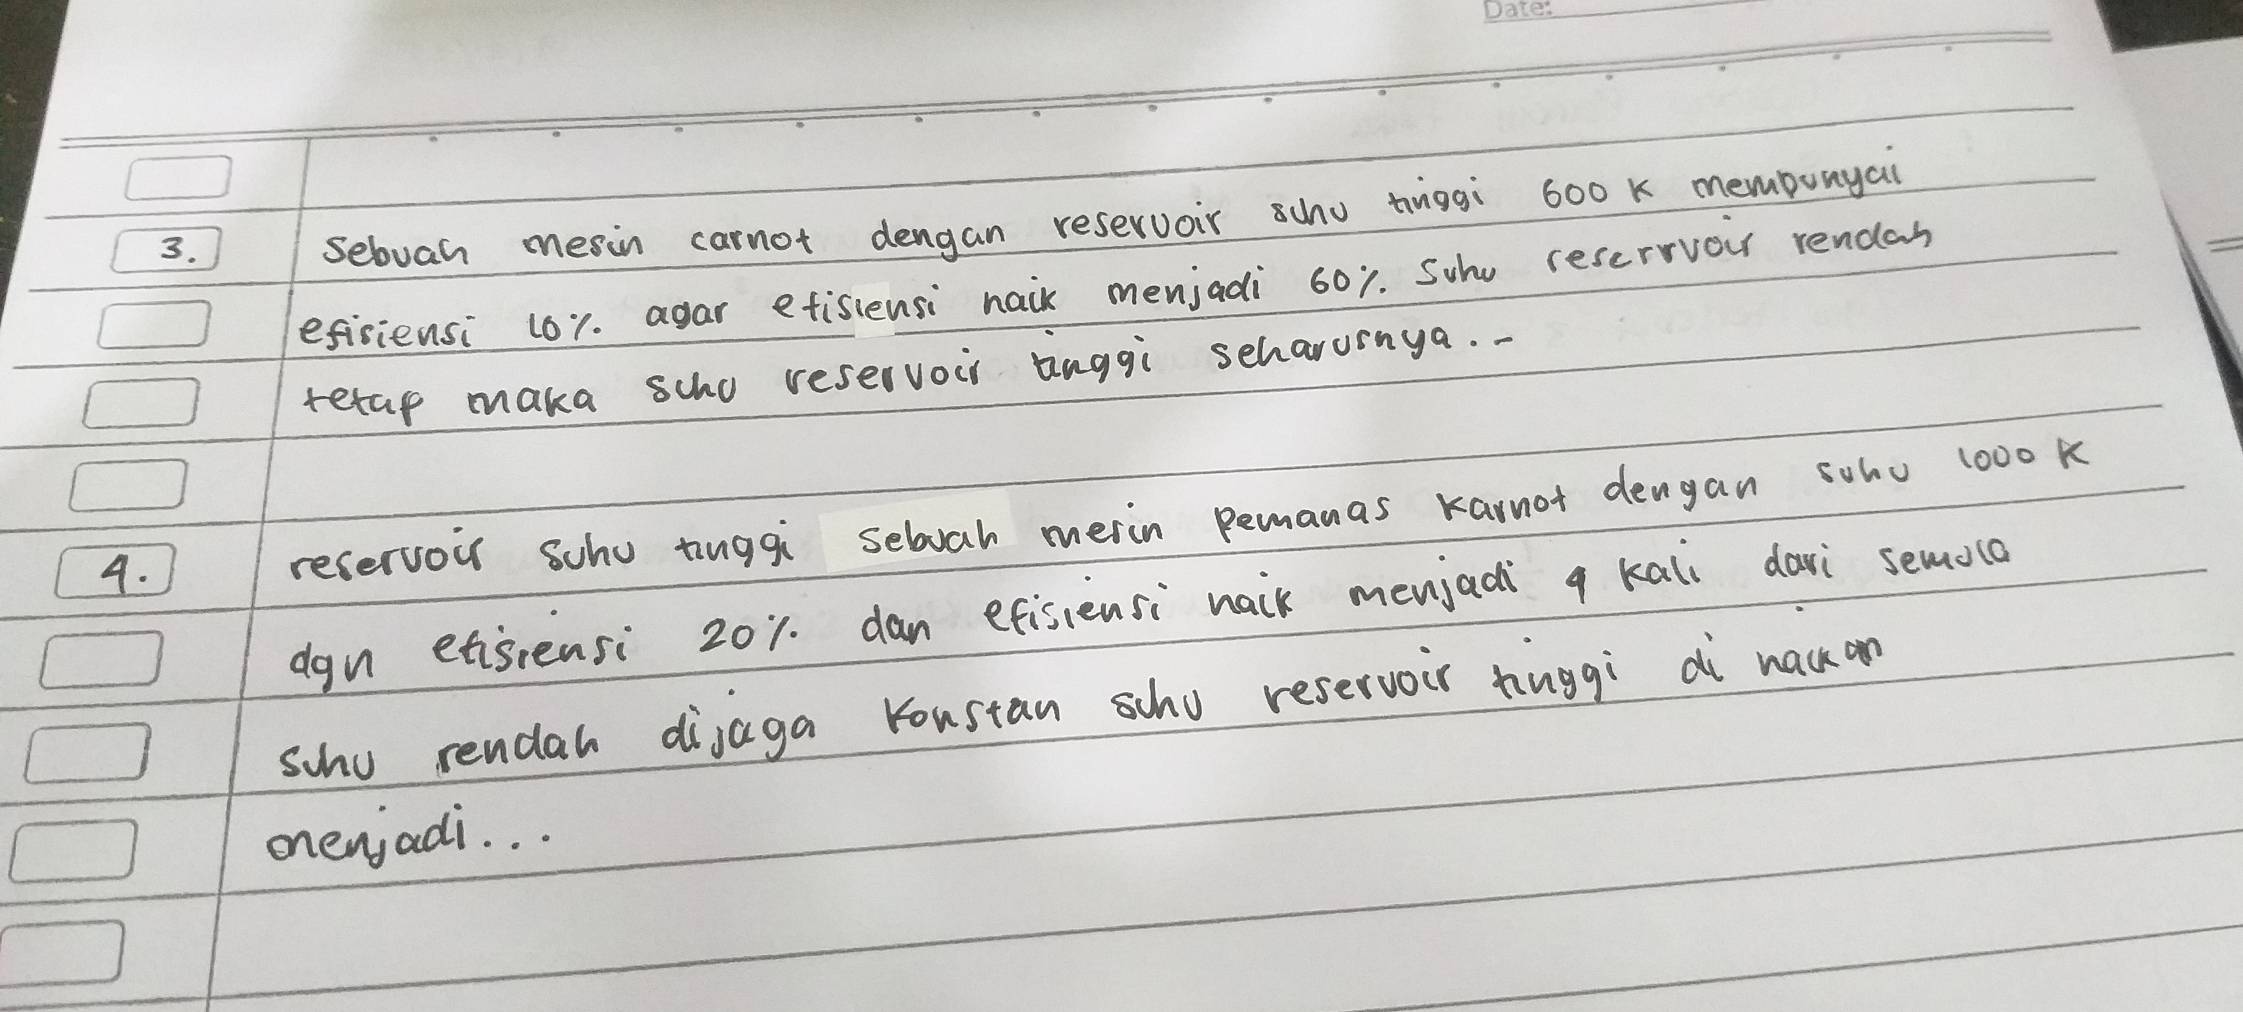 Date:
3. Sebuah mesin carnot dengan reservoir suhu tinggi 600 K mempunyai
efisiensi 10%. agar efisiensi naik menjadi 60%. Suhu reserrvoir rendah
tetap maka suhu reservoir tinggi seharusnya..
4. reservoir suhu tinggi sebuah mesin pemanas Karnot dengan suhu 1000 K
dgn efisiensi 20%. dan efisiensi naik menjadi 4 kali dari semula
suhu rendah dijaga konstan suhu reservoir tinggi di naikan
menjadi...